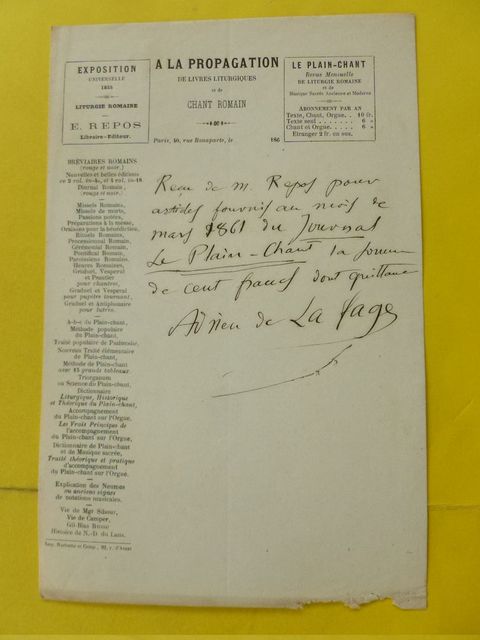 EXPOSITION
UNIVERSELLE
1855
LITURGIE ROMAINE
E. REPOS
Libraire-Editeur.
A LA PROPAGATION
DE LIVRES LITURGIQUES
et de
CHANT ROMAIN
Paris, 40, rue Bonaparte, le 186
LE PLAIN-CHANT
Revue Mensuelle
DE LITURGIE ROMAINE
et de
Musique Sacrée Ancienne et Moderne
ABONNEMENT PAR AN
Texte, Chant, Orgue. . 10 fr.
Texte seul . . . . . . 6 »
Chant et Orgue. . . . 6 »
Etranger 2 fr. en sus.
BRÉVIAIRES ROMAINS
(rouge et noir.)
Nouvelles et belles éditions
en 2 vol. in-4o, et 4 vol. in-18.
Diurnal Romain,
(rouge et noir.)
Missels Romains,
Missels de morts,
Passions notées,
Préparations à la messe,
Oraisons pour la bénédiction,
Rituels Romains,
Processionnal Romain,
Cérémonial Romain,
Pontifical Romain,
Paroissiens Romains,
Heures Romaines,
Graduel, Vesperal
et Psautier
pour chantres,
Graduel et Vesperal
pour pupitre tournant,
Graduel et Antiphonaire
pour lutrin.
A-b-c du Plain-chant,
Méthode populaire
du Plain-chant,
Traité populaire de Psalmodie.
Nouveau Traité élémentaire
de Plain-chant,
Méthode de Plain-chant
avec 15 grands tableaux.
Triorganum
ou Science du Plain-chant,
Dictionnaire
Liturgique, Historique
et Théorique du Plain-chant,
Accompagnement
du Plain-chant sur l'Orgue.
Les Vrais Principes de
l'accompagnement
du Plain-chant sur l'Orgue.
Dictionnaire de Plain-chant
et de Musique sacrée,
Traité théorique et pratique
d'accompagnement
du Plain-chant sur l'Orgue.
Explication des Neumes
ou anciens signes
de notations musicales.
Vie de Mgr Sibour,
Vie de Camper,
Gil-Blas
Histoire de N.-D. du Laus.
Reçu de M. Repos pour
articles fournis au mois de
mars 1861 du Journal
Le Plain-Chant la somme
de cent francs dont quittance
Adrien de La Fage